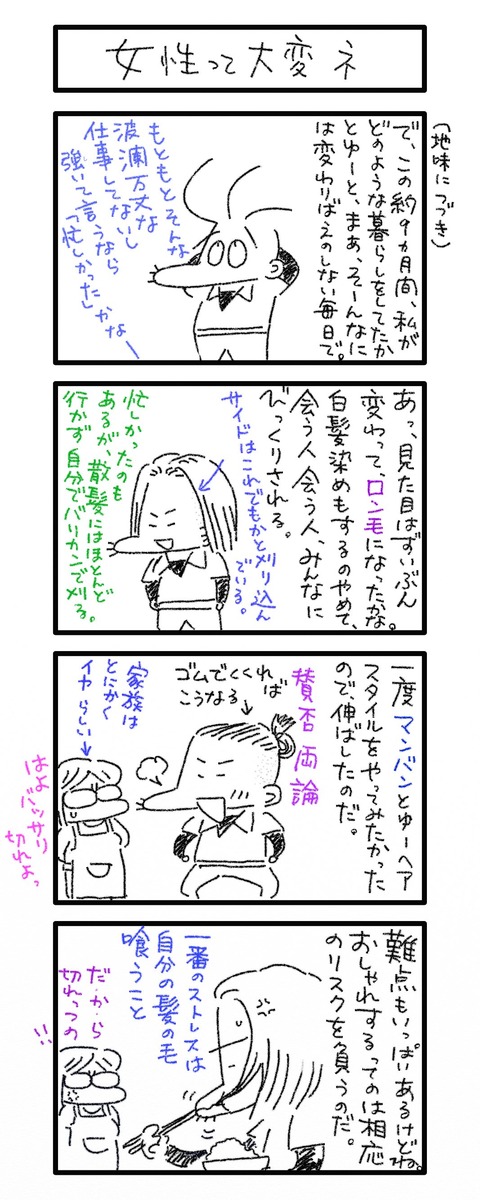 女性って大変ネ
（地味につづき）
で、この約9カ月間、私が
どのような暮らしをしてたか
とゆーと、まあ、そーんなに
は変わりばえのしない毎日で。
もともとそんな
波瀾万丈な
仕事してないし
強いて言うなら
「忙しかった」かなー
あっ、見た目はずいぶん
変わって、ロン毛になったかな。
白髪染めもするのやめて、
会う人会う人、みんなに
びっくりされる。
サイドはこれでもかと刈り込ん
でいる。
忙しかったのも
あるが、散髪にはほとんど
行かず自分でバリカンで刈る。
一度マンバンとゆーヘア
スタイルをやってみたかった
ので、伸ばしたのだ。
賛否両論
ゴムでくくれば
こうなる
家族は
とにかく
イヤらしい
はよ
バッサリ
切れよっ
難点もいっぱいあるけどね。
おしゃれするってのは相応
のリスクを負うのだ。
一番のストレスは
自分の髪の毛
喰うこと
だ・か・ら
切れっつの
!!